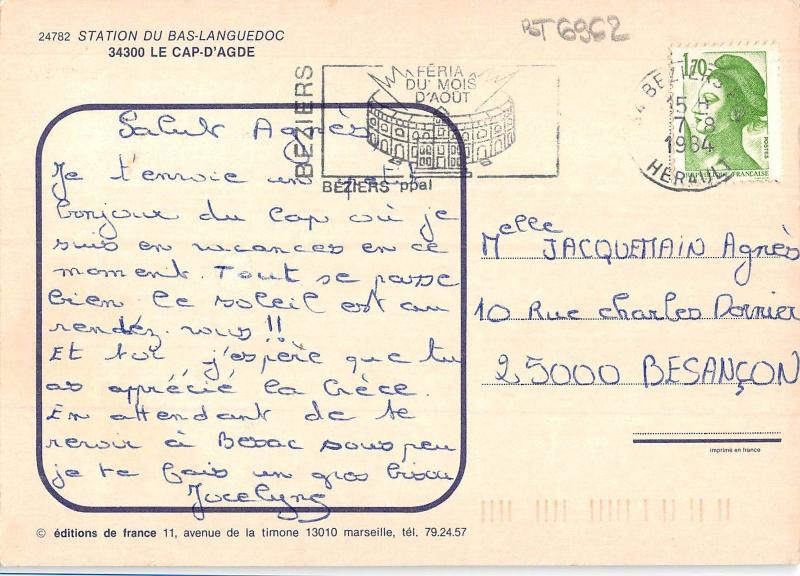 24782 STATION DU BAS-LANGUEDOC
34300 LE CAP-D'AGDE
PST6962
BÉZIERS
FÉRIA
DU MOIS
D'AOÛT
BÉZIERS ppal
34 BEZIERS
15 H
7-8
1984
HÉRAULT
1,70
POSTES
REPUBLIQUE FRANÇAISE
Salut Agnès
Je t'envoie un petit
bonjour du Cap où je
suis en vacances en ce
moment. Tout se passe
bien le soleil est au
rendez vous !!
Et toi j'espère que tu
as apprécié la Grèce.
En attendant de te
revoir à Besac sous peu
je te fais un gros bisou
Jocelyne
Melle JACQUEMAIN Agnès
10 Rue charles Dornier
25000 BESANÇON
imprimé en france
© éditions de france 11, avenue de la timone 13010 marseille, tél. 79.24.57